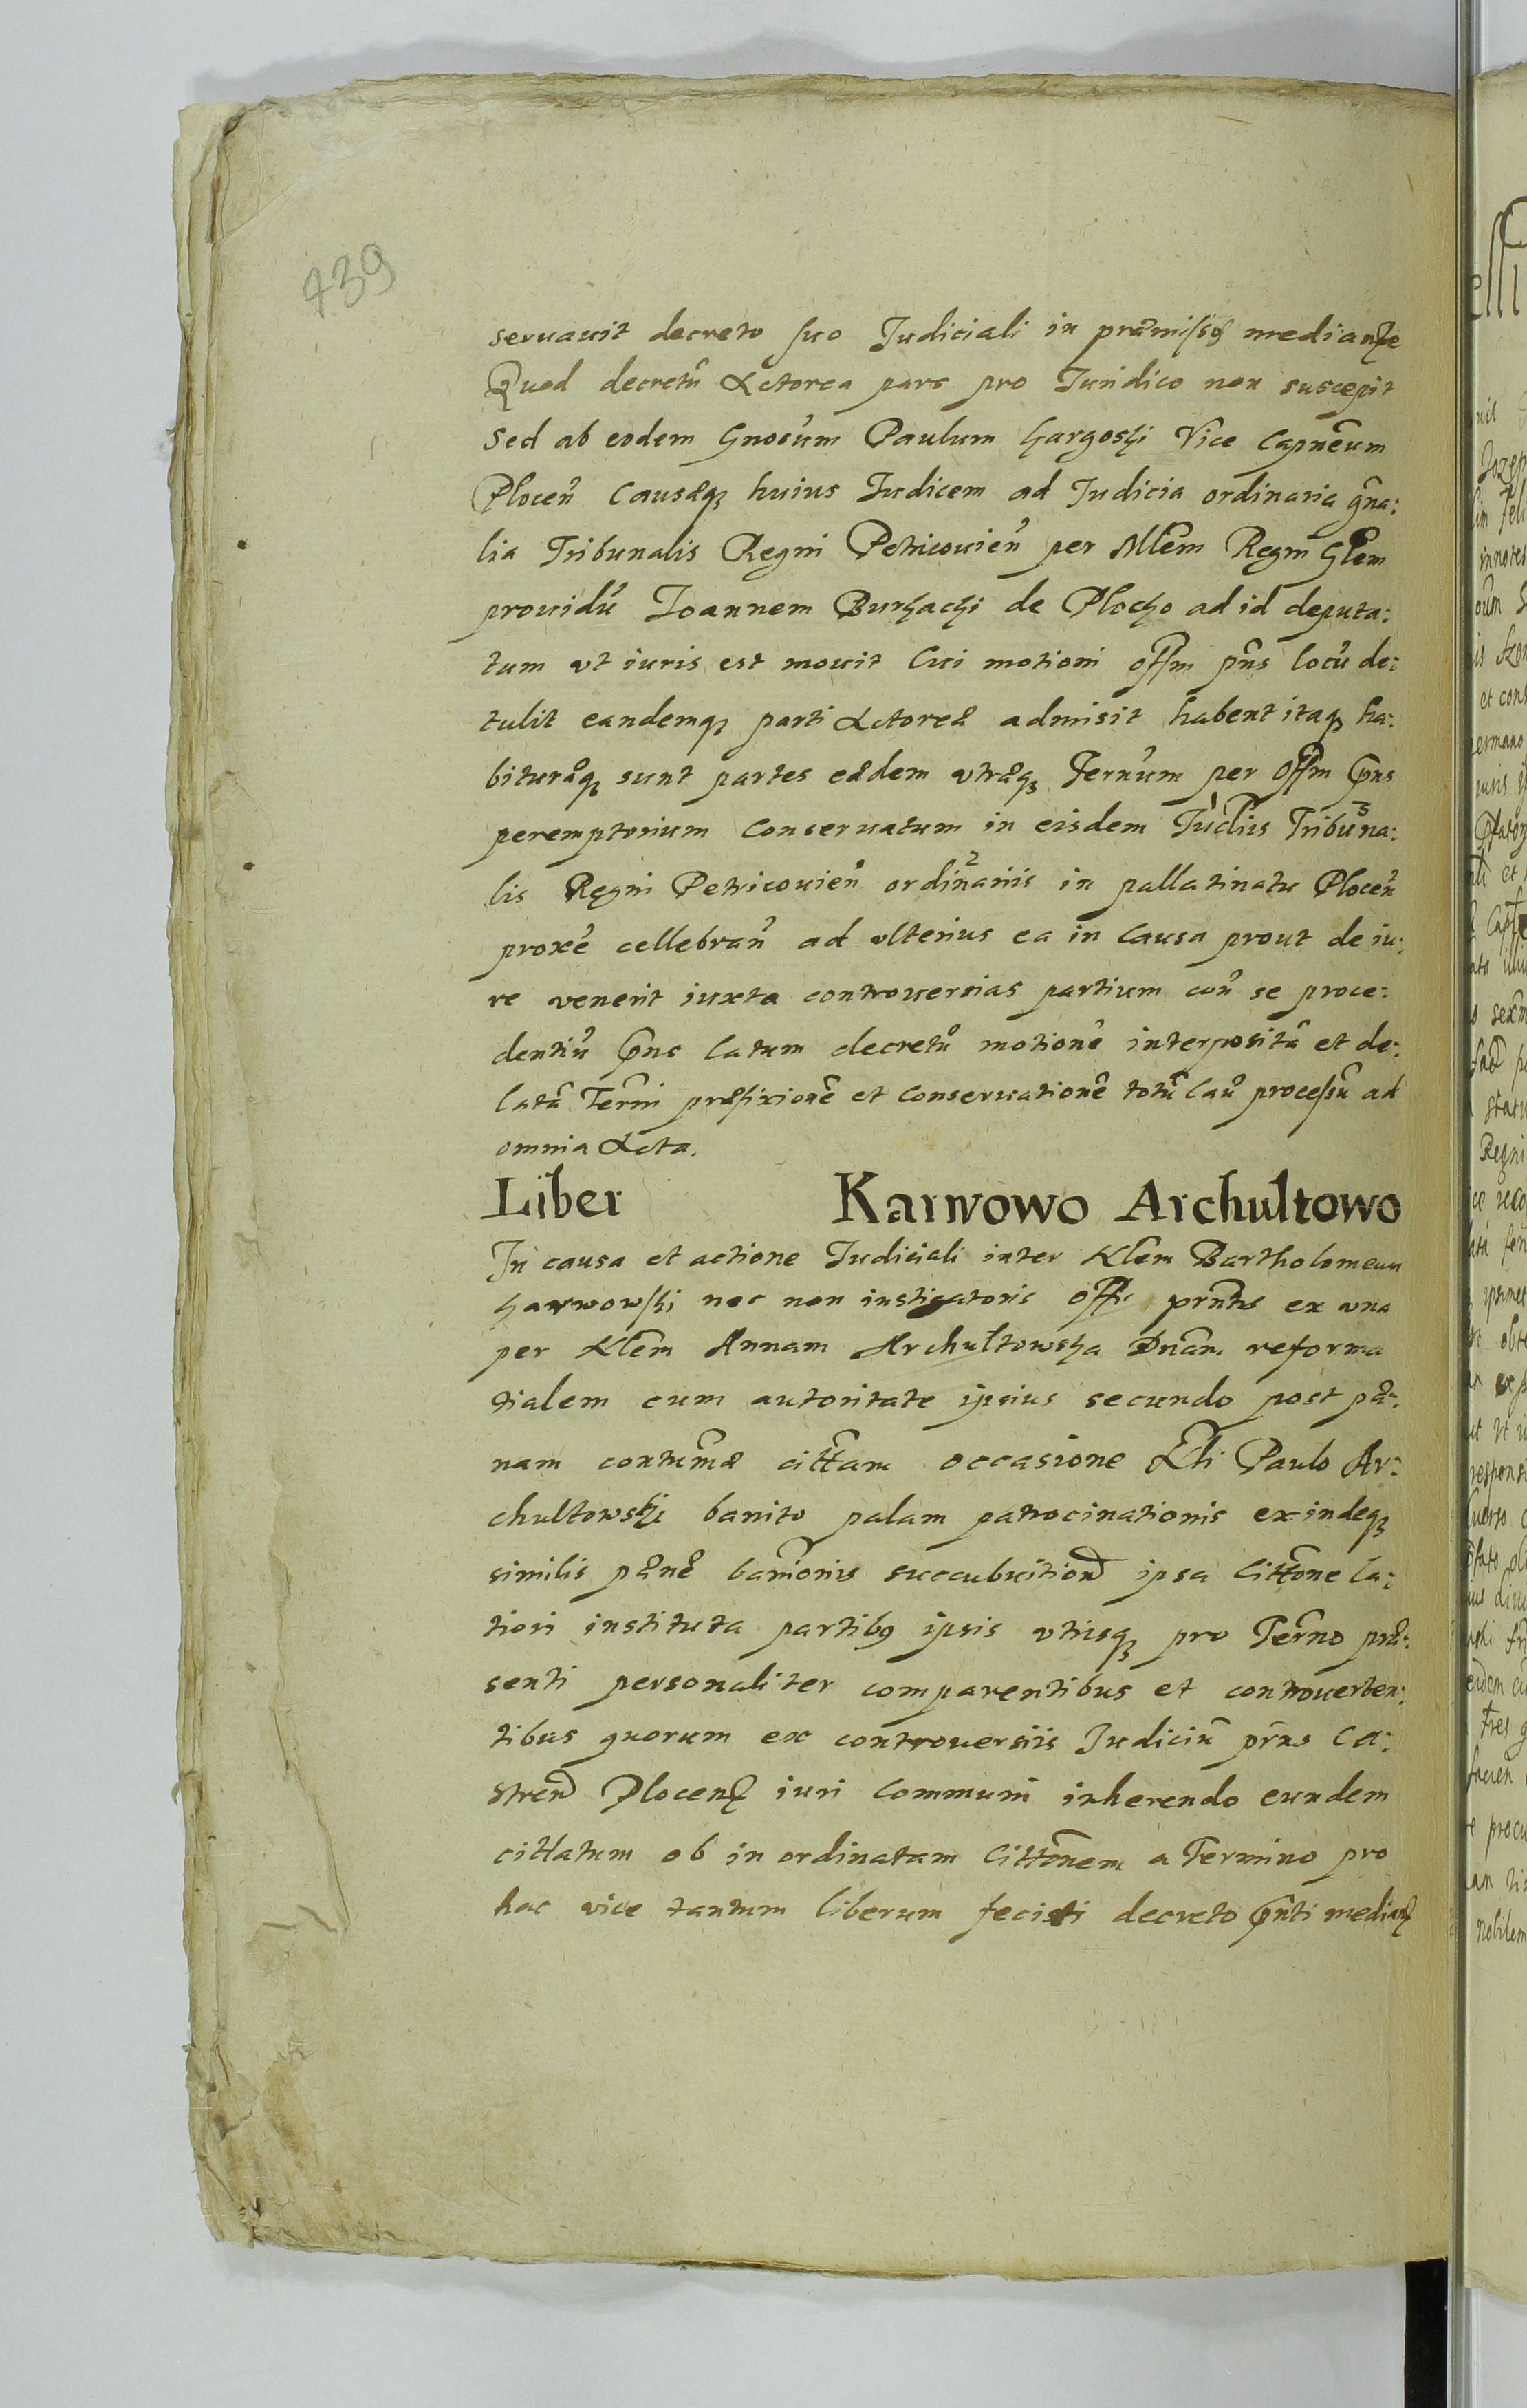 439
seruauit decreto suo Iudiciali in præmissis mediante
Quod decretũ Actorea pars pro Iuridico non suscepit
Sed ab eodem Gnosũm Paulum Gargoski Vice Capnẽum
Ploceñ Causæq huius Iudicem ad Iudicia ordinaria gña:
lia Tribunalis Regni Petricouieñ per Mlẽm Regni Glẽm
prouidũ Ioannem Burkacki de Plocko ad id deputa:
tum vt iuris est mouit Cui motioni Offm pñs locũ de:
tulit eandemq parti Actoreæ admisit habent itaq ha:
bituræq sunt partes eædem vtræq Termũm per Offm pñs
peremptorium Conseruatum in eisdem Iudiciis Tribuna:
lis Regni Petricouieñ ordinariis in pallatinatu Ploceñ
proxẽ cellebrañ ad vlterius ea in Causa prout de iu:
re venerit iuxta controuersias partium coñ se proce:
dentiũ pñs latum decretũ motionẽ interpositã et de:
latã Termi præfixionẽ et Conseruationẽ totũ Cau processũ ad
omnia Acta.
Liber Karwowo Archultowo
In causa et actione Iudiciali inter Nlẽm Bartholomeum
Karwowski nec non instigatoris Offi prñtis ex vna
per Nlẽm Annam Archultowska Dnãm reforma
tialem cum autoritate ipsius secundo post pæ:
nam contumã citãm occasione Nli Paulo Ar:
chultowski banito palam patrocinationis exindeq
similis pænæ banionis succubuition ipsa Cittone la:
tiori instituta partibq ipsis vtrisq pro Termno præ:
senti personaliter comparentibus et controuerten:
tibus quorum ex controuersiis Iudiciũ prñs Ca:
stren Plocen iuri Communi inherendo eundem
cittatum ob in ordinatam Cittonem a Termino pro
hac vice tantum liberum fecisti decreto pñti median